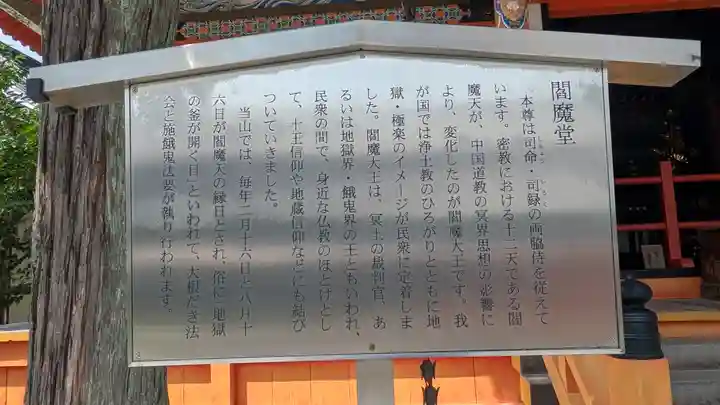 閻魔堂
本尊は司命・司録の両脇侍を従えて
います。密教における十二天である閻
魔天が、中国道教の冥界思想の影響に
より、変化したのが閻魔大王です。我
が国では浄土教のひろがりとともに地
獄・極楽のイメージが民衆に定着しま
した。閻魔大王は、冥土の裁判官、あ
るいは地獄界・餓鬼界の王ともいわれ、
民衆の間で、身近な仏教のほとけとし
て、十王信仰や地蔵信仰などにも結び
ついていきました。
当山では、毎年二月十六日と八月十
六日が閻魔天の縁日とされ、俗に「地獄
の釜が開く日」といわれて、大根だき法
会と施餓鬼法要が執り行われます。